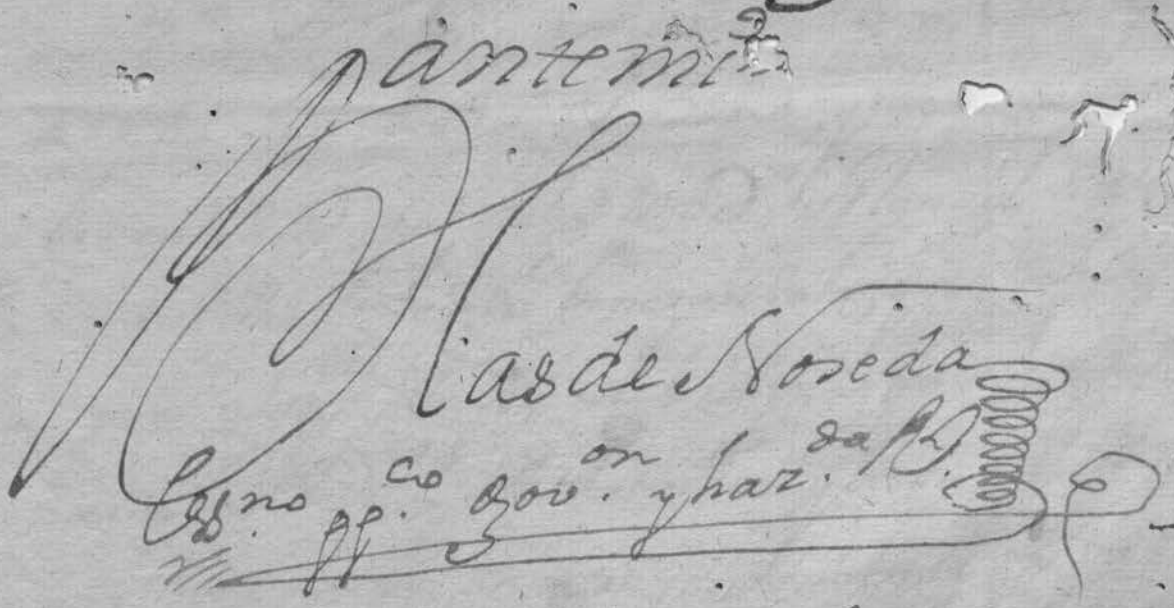 ante mi
Blas de Noseda
Essno. pp.co gov.on y haz.da Rl.